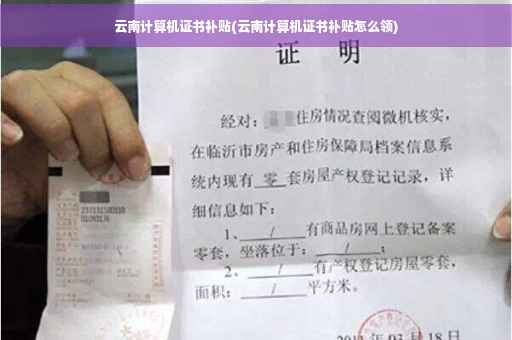 云南计算机证书补贴(云南计算机证书补贴怎么领)
证 明
经对：住房情况查阅微机核实，
在临沂市房产和住房保障局档案信息系
统内现有 零 套房屋产权登记记录，详
细信息如下：
1、 / 有商品房网上登记备案
零套，坐落位于： / ；
2、 / 有产权登记房屋零套，
面积： / 平方米。
03 月 18 日